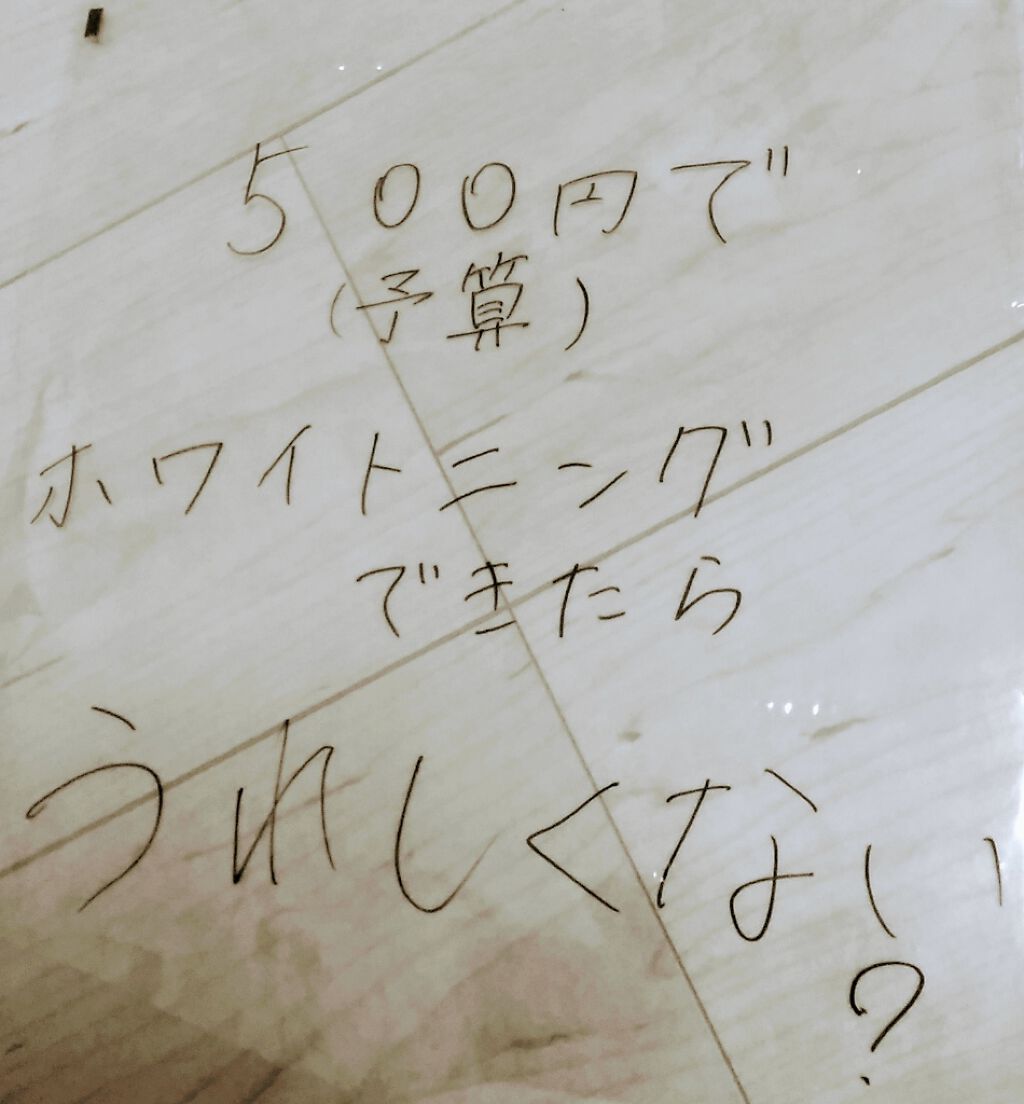 500円で
(予算)
ホワイトニング
できたら
うれしくない
?